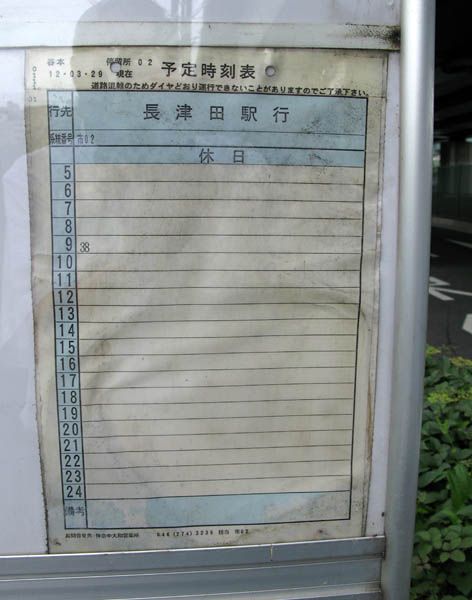 谷本 停留所 02
12-03-29 現在 予定時刻表
道路混雑のためダイヤどおり運行できないことがありますのでご了承下さい。
行先 長津田駅行
系統番号 市02
休日
5
6
7
8
9 38
10
11
12
13
14
15
16
17
18
19
20
21
22
23
24
備考
お問合せ先 神奈中大和営業所 046 (274) 3239 担当 市02